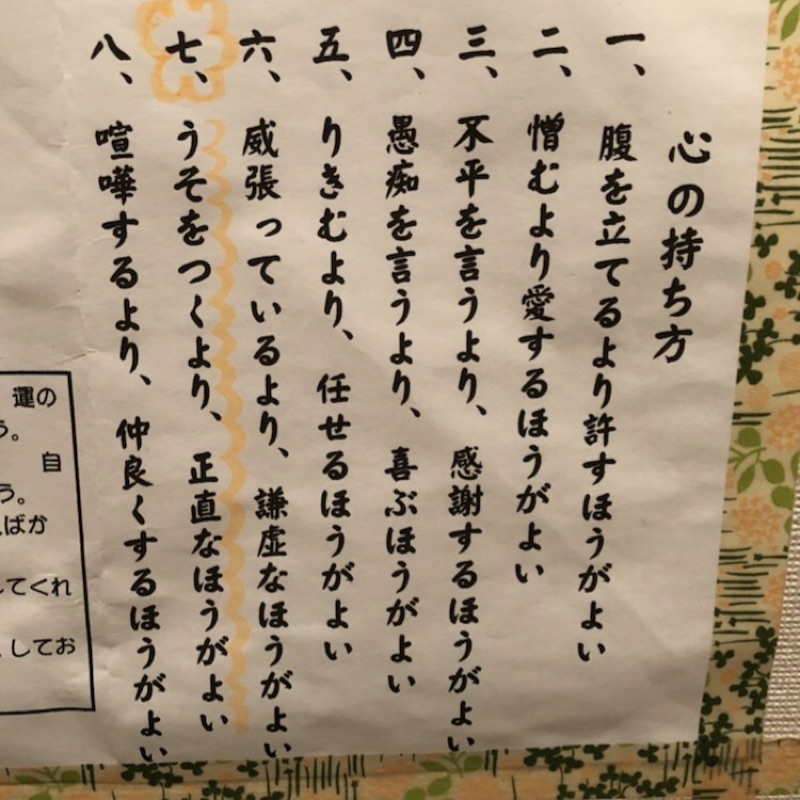 心の持ち方
一、腹を立てるより許すほうがよい
二、憎むより愛するほうがよい
三、不平を言うより、感謝するほうがよい
四、愚痴を言うより、喜ぶほうがよい
五、りきむより、任せるほうがよい
六、威張っているより、謙虚なほうがよい
七、うそをつくより、正直なほうがよい
八、喧嘩するより、仲良くするほうがよい
運の
う。
自
う。
ばか
してくれ
、してお